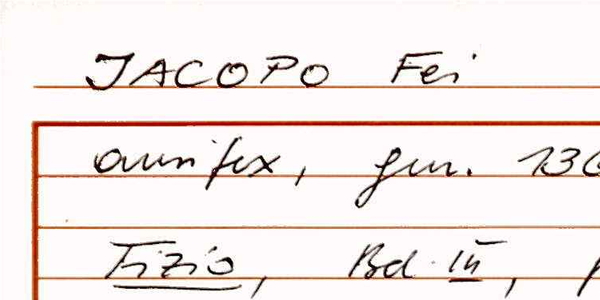 JACOPO Fei
aurifex, gen. 136
Tizio, Bd. III, p